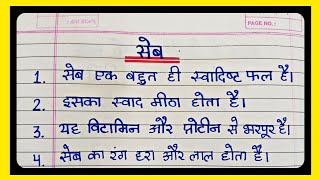 PAGE NO.:
सेब
1. सेब एक बहुत ही स्वादिष्ट फल है।
2. इसका स्वाद मीठा होता है।
3. यह विटामिन और प्रोटीन से भरपूर है।
4. सेब का रंग हरा और लाल होता है।